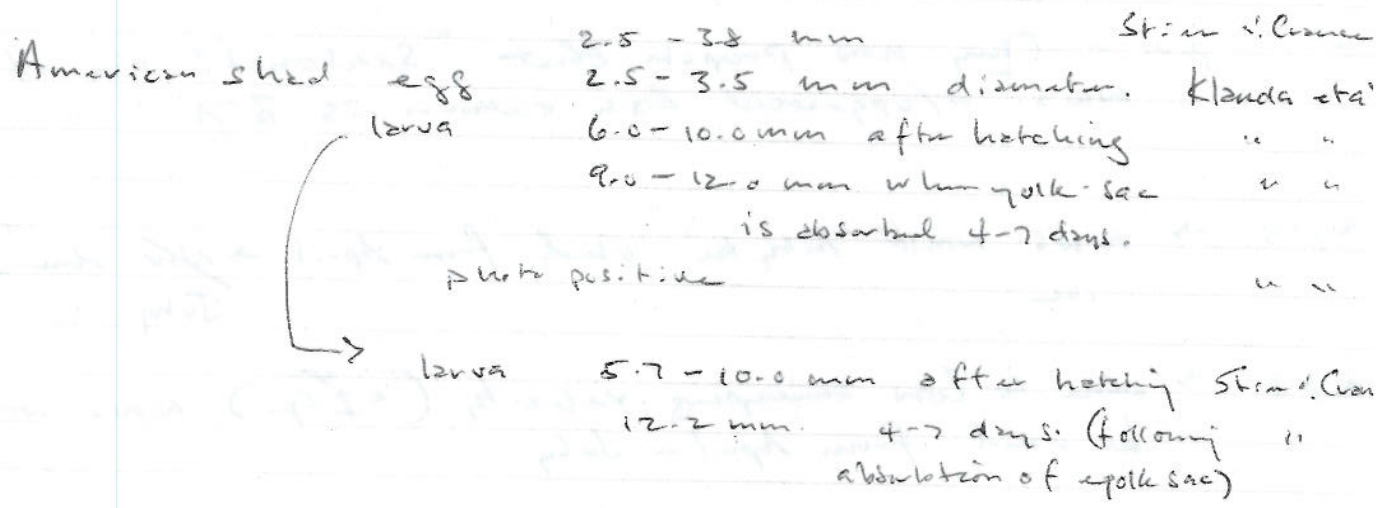 2.5 - 3.8 mm Stier & Crance
American shad egg 2.5 - 3.5 mm diameter. Klauda eta
larva 6.0 - 10.0 mm after hatching " "
9.0 - 12.0 mm when yolk-sac " "
is absorbed 4-7 days.
photo positive " "
larva 5.7 - 10.0 mm after hatching Stier & Cran
12.2 mm. 4-7 days. (following "
absorbtion of yolk sac)